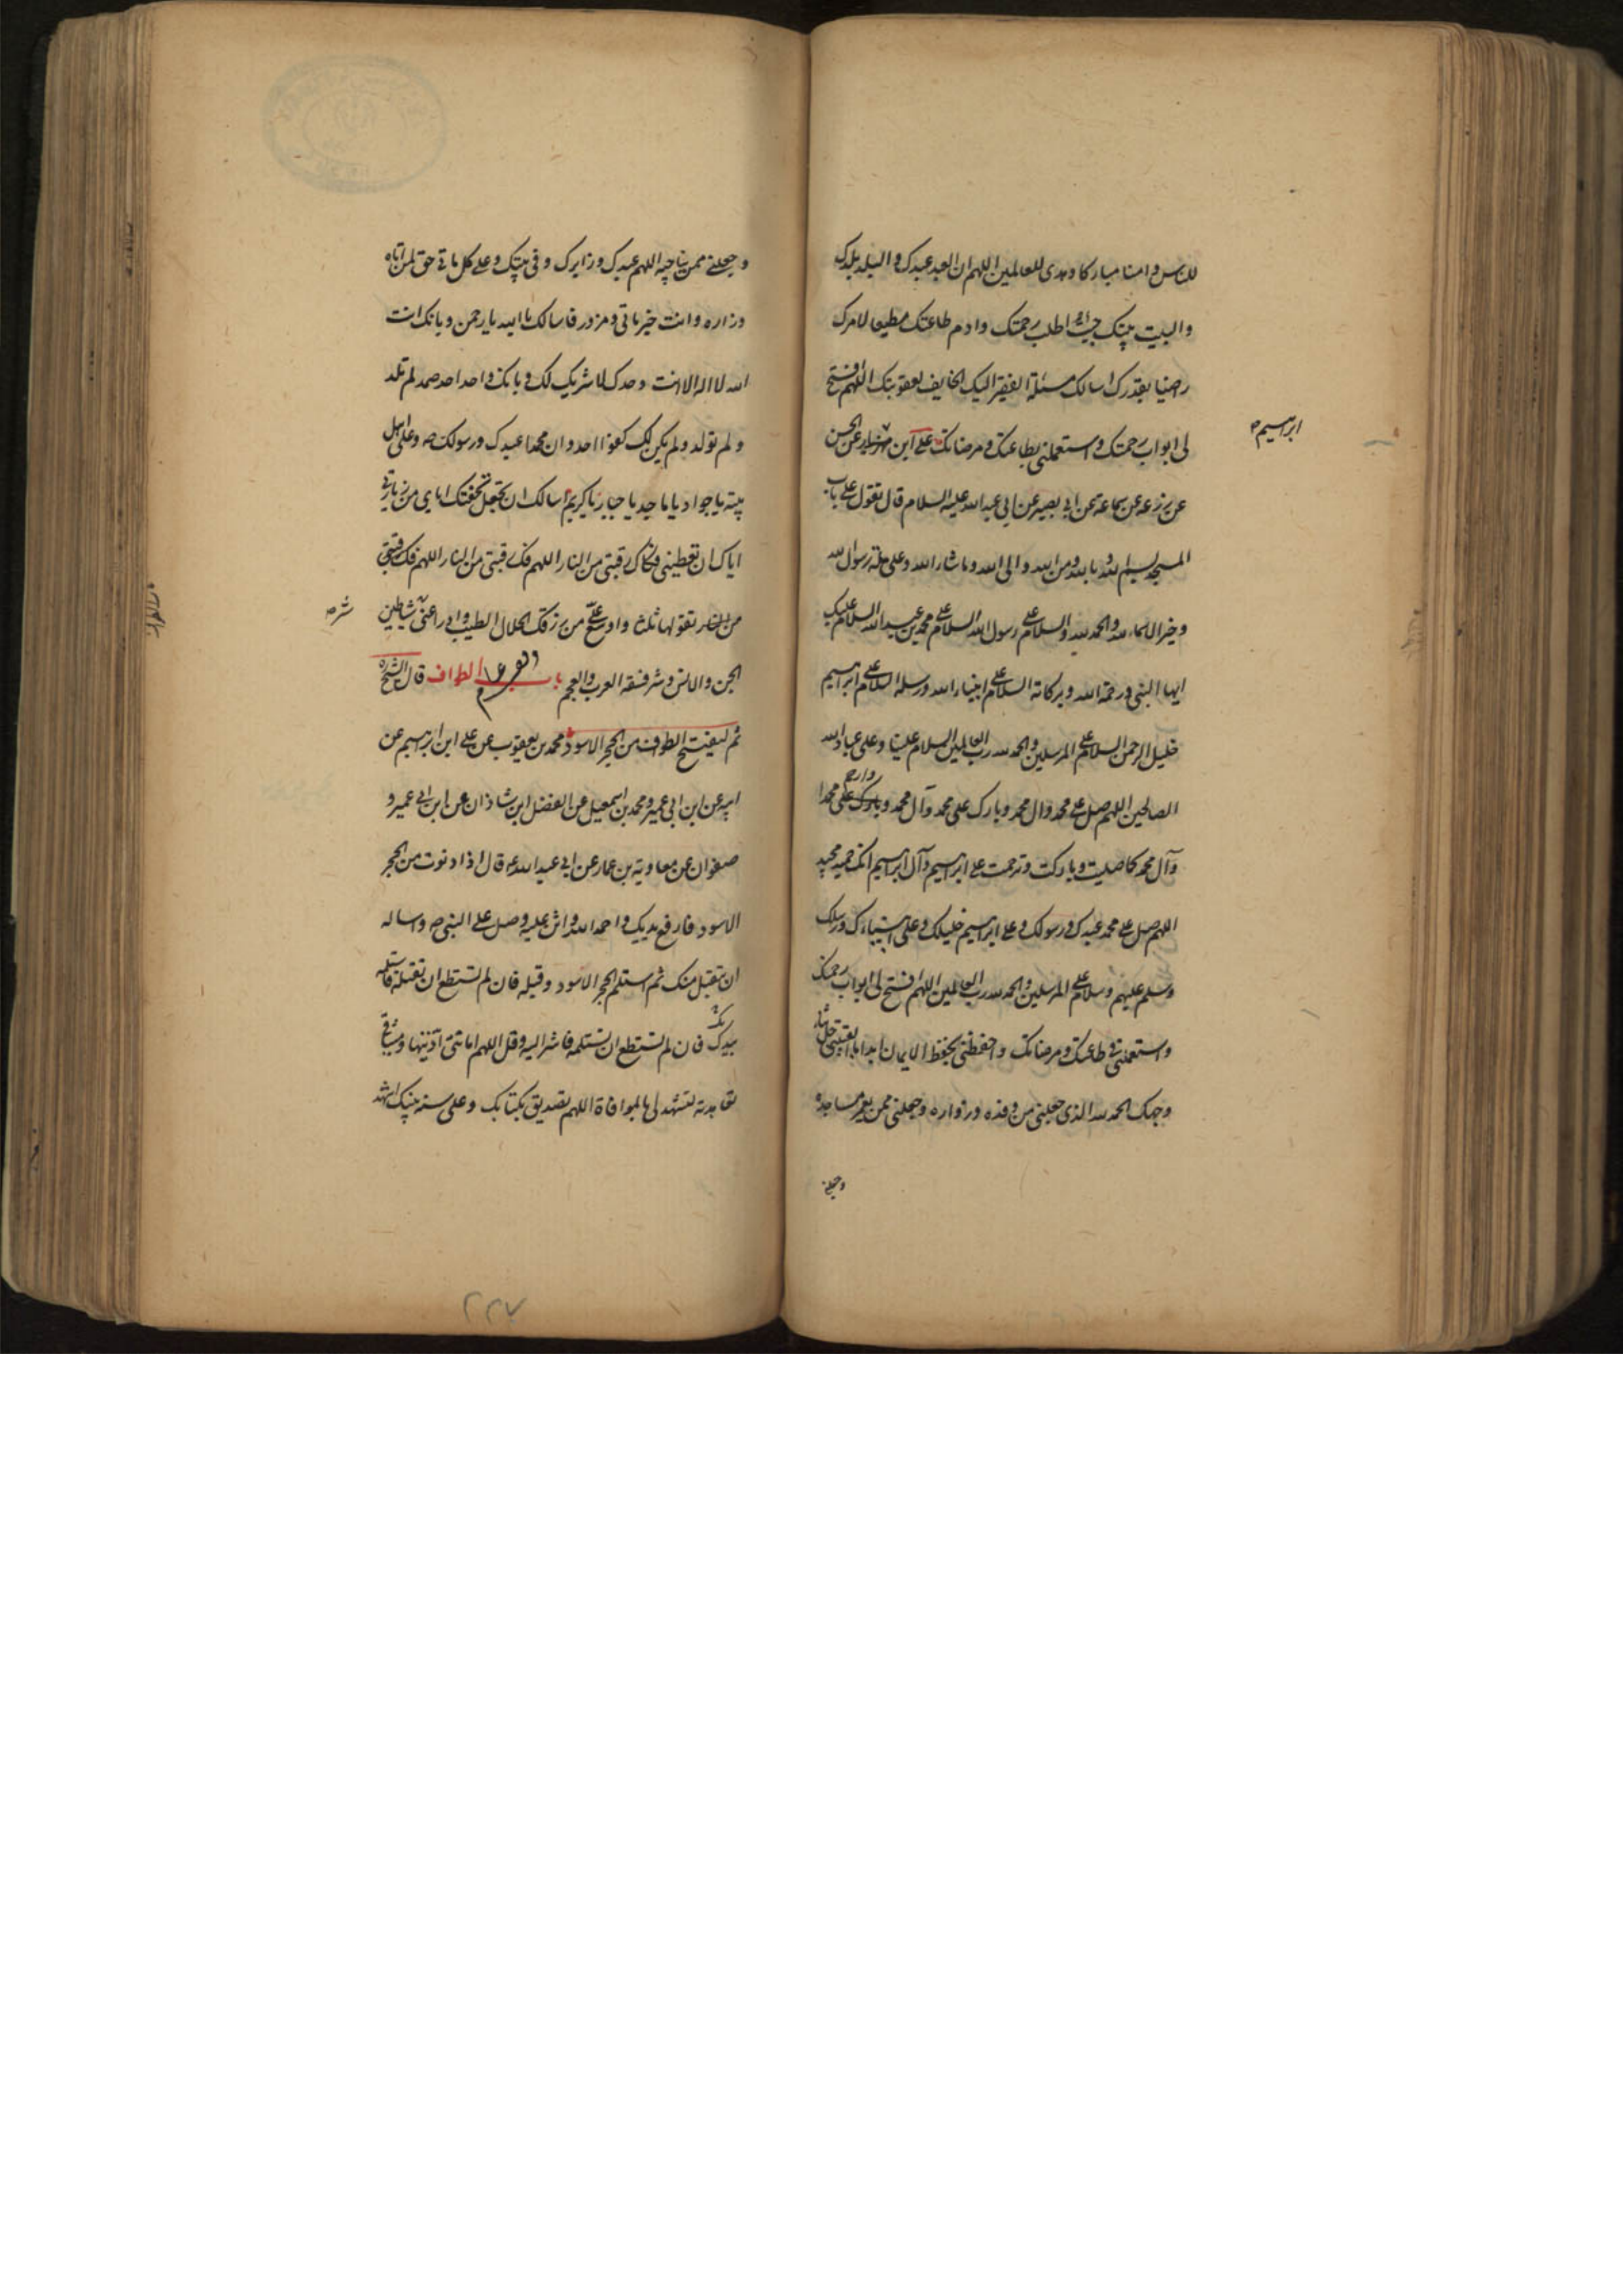 للناس وامنا مباركا وهدى للعالمين اللهم ان العبد عبدك والبلد بلدك
والبيت بيتك جئت اطلب رحمتك وادم طاعتك مطيعا لامرك
راضيا بقدرك اسالك مسئلة الفقير اليك الخايف لعقوبتك اللهم افتح
لى ابواب رحمتك واستعملنى بطاعتك ومرضاتك على ابن مهزيار عن الحسن
ابرهيم
عن زرعه عن سماعة عن ابى بصير عن ابى عبد الله عليه السلام قال تقول على باب
المسجد بسم الله وبالله ومن الله والى الله وماشاء الله وعلى ملة رسول الله
وخير الاسماء لله والحمد لله والسلام على رسول الله السلام على محمد بن عبد الله السلام عليك
ايها النبى ورحمة الله وبركاته السلام على انبياء الله ورسله السلام على ابرهيم
خليل الرحمن السلام على المرسلين والحمد لله رب العالمين السلام علينا وعلى عباد الله
الصالحين اللهم صل على محمد وال محمد وبارك على محمد وآل محمد وبارك على محمدا
وارحم
وآل محمد كما صليت وباركت وترحمت على ابرهيم وآل ابرهيم انك حميد مجيد
اللهم صل على محمد عبدك ورسولك وعلى ابرهيم خليلك وعلى انبياءك ورسلك
وسلم عليهم وسلام على المرسلين والحمد لله رب العالمين اللهم افتح لى ابواب رحمتك
واستعملنى فى طاعتك ومرضاتك واحفظنى بحفظ الايمان ابدا ما ابقيتنى جل ثناء
وجهك الحمد لله الذى جعلنى من وفده وزواره وجعلنى ممن يعمر مساجده
وجعلنى
وجعلنى ممن يناجيه اللهم عبدك وزايرك وفى بيتك وعلى كل ماتى حق لمن اتاه
وزاره وانت خير ماتى ومزور فاسالك يا الله يا رحمن وبانك انت
الله لا اله الا انت وحدك لا شريك لك وبانك واحد احد صمد لم تلد
ولم تولد ولم يكن لك كفوا احد وان محمدا عبدك ورسولك صه وعلى اهل
بيته يا جواد يا ماجد يا جبار يا كريم اسالك ان تجعل تحفتك اياى من زيارتى
اياك ان تعطينى فكاك رقبتى من النار اللهم فك رقبتى من النار اللهم فك رقبتى
من النار تقولها ثلثا واوسع على من رزقك الحلال الطيب وادرا عنى شياطين
شر
الجن والانس وشر فسقه العرب والعجم باب الطواف قال الشيخ ره
ثم ليفتتح الطواف من الحجر الاسود محمد بن يعقوب عن على ابن ابرهيم عن
ابيه عن ابن ابى عمير ومحمد بن اسمعيل عن الفضل ابن شاذان عن ابن ابى عمير و
صفوان عن معاوية بن عمار عن ابى عبد الله ع قال اذا دنوت من الحجر
الاسود فارفع يديك واحمد الله واثن عليه وصل على النبى صه واساله
ان يتقبل منك ثم استلم الحجر الاسود وقبله فان لم تستطع ان تقبله فاستلمه
بيدك فان لم تستطع ان تستلمه فاشر اليه وقل اللهم امانتى اديتها وميثاقى
تعاهدته لتشهد لى بالموافاة اللهم تصديق بكتابك وعلى سنه نبيك اشهد
۲۲۷